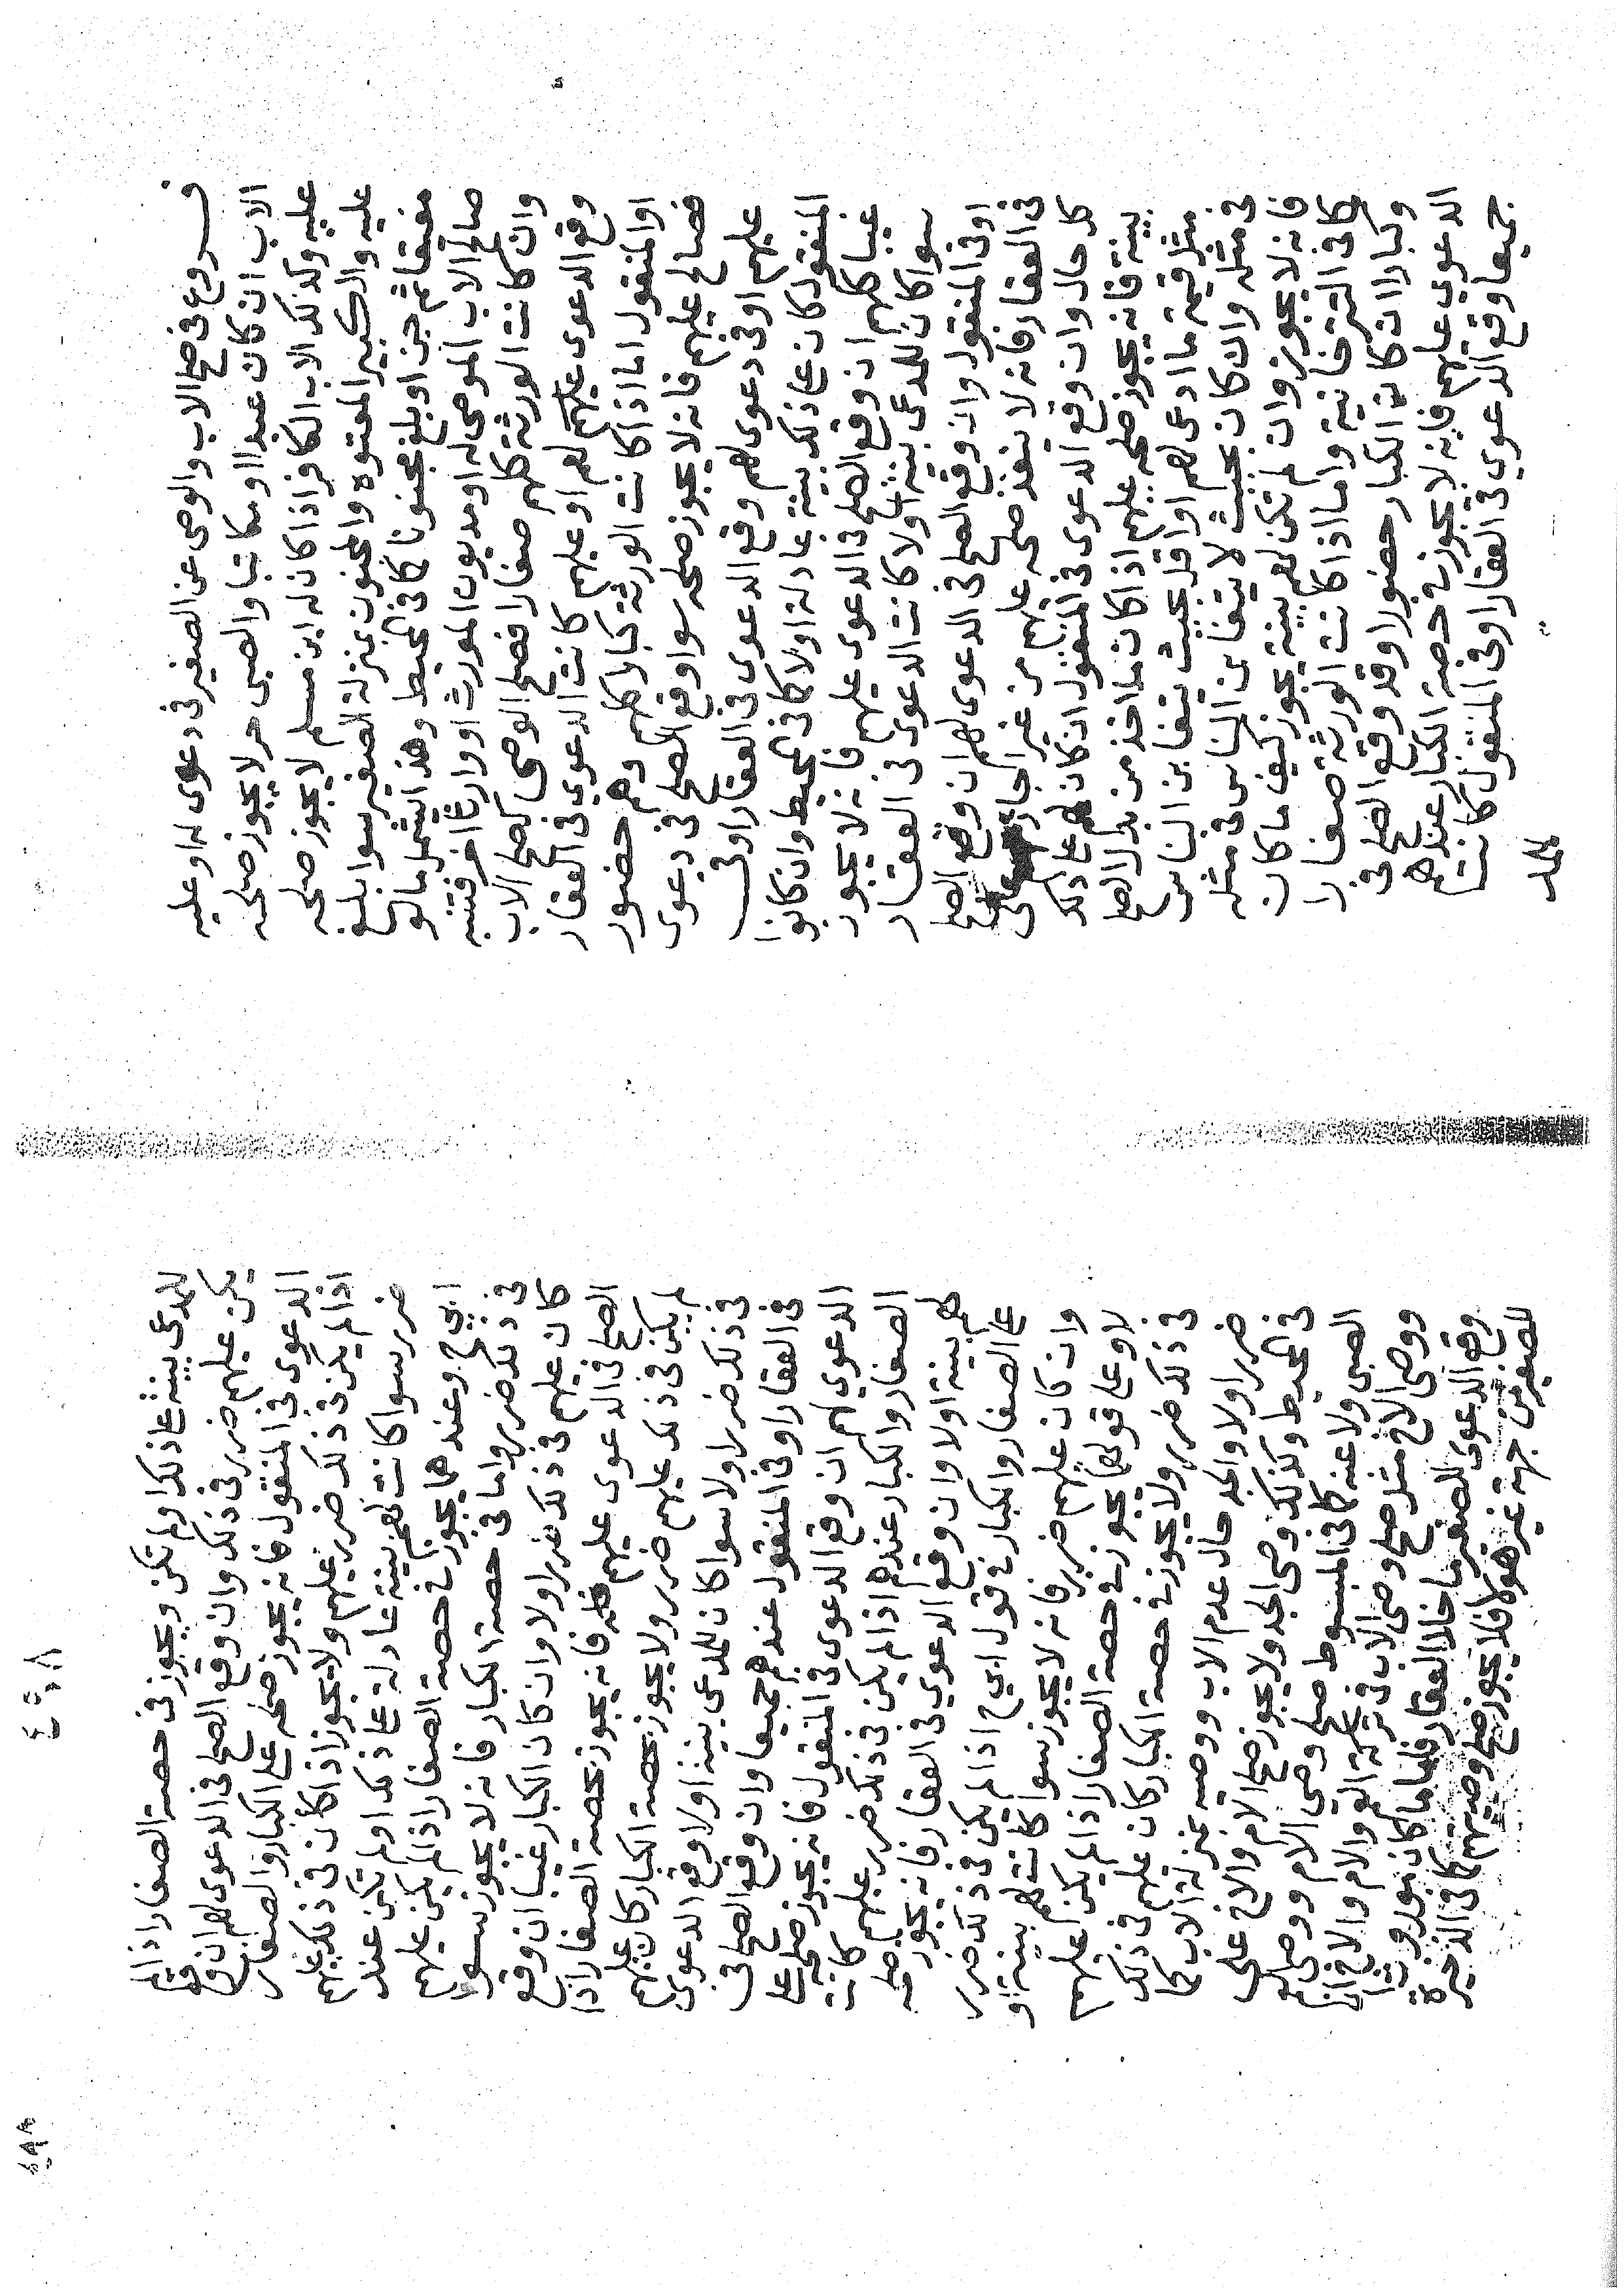 فروع في صلح الاب والوصي عن الصغير في دعوى له او عليه
الاب ان كان عبدا او مكاتبا والصبى حر لا يجوز صلحه
عليه وكذلك الاب الكافر اذا كان له ابن مسلم لا يجوز صلحه
عليه والكبير المعتوه والمجنون بمنزلة الصغير سوا بلغ
مفيقا ثم جن او بلغ مجنونا كما فى المحيط وهذا يشمل ما لو
صالح الاب الموصى له او مديون المورث او وارثا اخر فتنبه
وان كانت الورثة كلهم صغارا فصلح الوصى كصلح الاب
وقع الدعوى عليهم لهم او عليهم كانت الدعوى فى العقار
او المنقول اما اذا كانت الورثة كبارا كلهم وهم حضور
فصالح عليهم فانه لا يجوز صلحه سوا وقع الصلح فى دعوى
عليهم او فى دعوى لهم وقع الدعوى فى العقار او فى
المنقول كان على ذلك بينة عادلة اولا كما فى المحيط وان كانوا
غيبا كلهم ان وقع الصلح فى الدعوى عليهم فانه لا يجوز
سوا كان للمدعى بينة اولا كانت الدعوى فى العقار
او فى المنقول وان وقع الصلح فى الدعوى لهم ان وقع الصلح
فى العقار فانه لا ينفذ صلحه عليهم من غير اجازتهم على
كل حال وان وقع الدعوى فى المنقول ان كان لهم على ذلك
بينة فانه يجوز صلحه عليهم اذا كان ما اخذ من بدل الصلح
مثل قيمة ما ادعى لهم او اقل بحيث يتغابن الناس فى مثله
فى مثله وان كان بحيث لا يتغابن الناس فى مثله
فانه لا يجوز وان لم تكن لهم بينة يجوز كيف ما كان
كما فى التترخانية واما اذا كانت الورثة صغارا
وكبارا ان كانت الكبار حضورا وقد وقع الصلح فى
الدعوى عليهم فانه لا يجوز فى حصة الكبار عندهم
جميعا وقع الدعوى فى العقار او فى المنقول كانت
للمد
٤٠٨
للمدعى بينة على ذلك او لم تكن ويجوز فى حصة الصغار اذا لم
يكن عليهم ضرر فى ذلك وان وقع الصلح فى الدعوى لهم ان وقع
الدعوى فى المنقول فانه يجوز صلحه على الكبار والصغار
اذا لم يكن فى ذلك ضرر عليهم ولا يجوز اذا كان فى ذلك عليهم
ضرر سوا كانت لهم بينة عادلة على ذلك او لم تكن عند
ابى ح وعندهما يجوز فى حصة الصغار اذا لم يكن عليهم
فى ذلك ضرر واما فى حصة الكبار فانه لا يجوز سوا
كان عليهم فى ذلك ضرر اولا وان كان الكبار غيبا ان وقع
الصلح فى الدعوى عليهم فانه يجوز بحصة الصغار اذا
لم يكن فى ذلك عليهم ضرر ولا يجوز بحصة الكبار كان عليهم
فى ذلك ضرر اولا سوا كان للمدعى بينة اولا وقع الدعوى
فى العقار او فى المنقول عندهم جميعا وان وقع الصلح فى
الدعوى لهم ان وقع الدعوى فى المنقول فانه يجوز صلحه على
الصغار والكبار عندهم اذا لم يكن فى ذلك ضرر عليهم كانت
لهم بينة اولا وان وقع الدعوى فى العقار فانه يجوز صلحه
على الصغار والكبار فى قول ابى ح اذا لم يكن فى ذلك ضرر
وان كان عليهم ضرر فانه لا يجوز سوا كانت لهم بينة او
لا وعلى قولهما يجوز فى حصة الصغار اذا لم يكن عليهم
فى ذلك ضرر ولا يجوز فى حصة الكبار كان عليهم فى ذلك
ضرر اولا والجد حال عدم الاب ووصيه بمنزلة الاب كما
فى المحيط وكذلك وصى الجد ولا يجوز صلح الام والاخ على
الصبى ولا عنه كما فى المبسوط صلح وصى الام ووصى العم
ووصى الاخ مثل صلح وصى الاب فى تركة العم والام والاخ ان
وقع الدعوى للصغير ما خلا العقار فاما ما كان موروثا
للصغير من جهة غير هولاء فلا يجوز صلح وصيهم كما فى الذخيرة